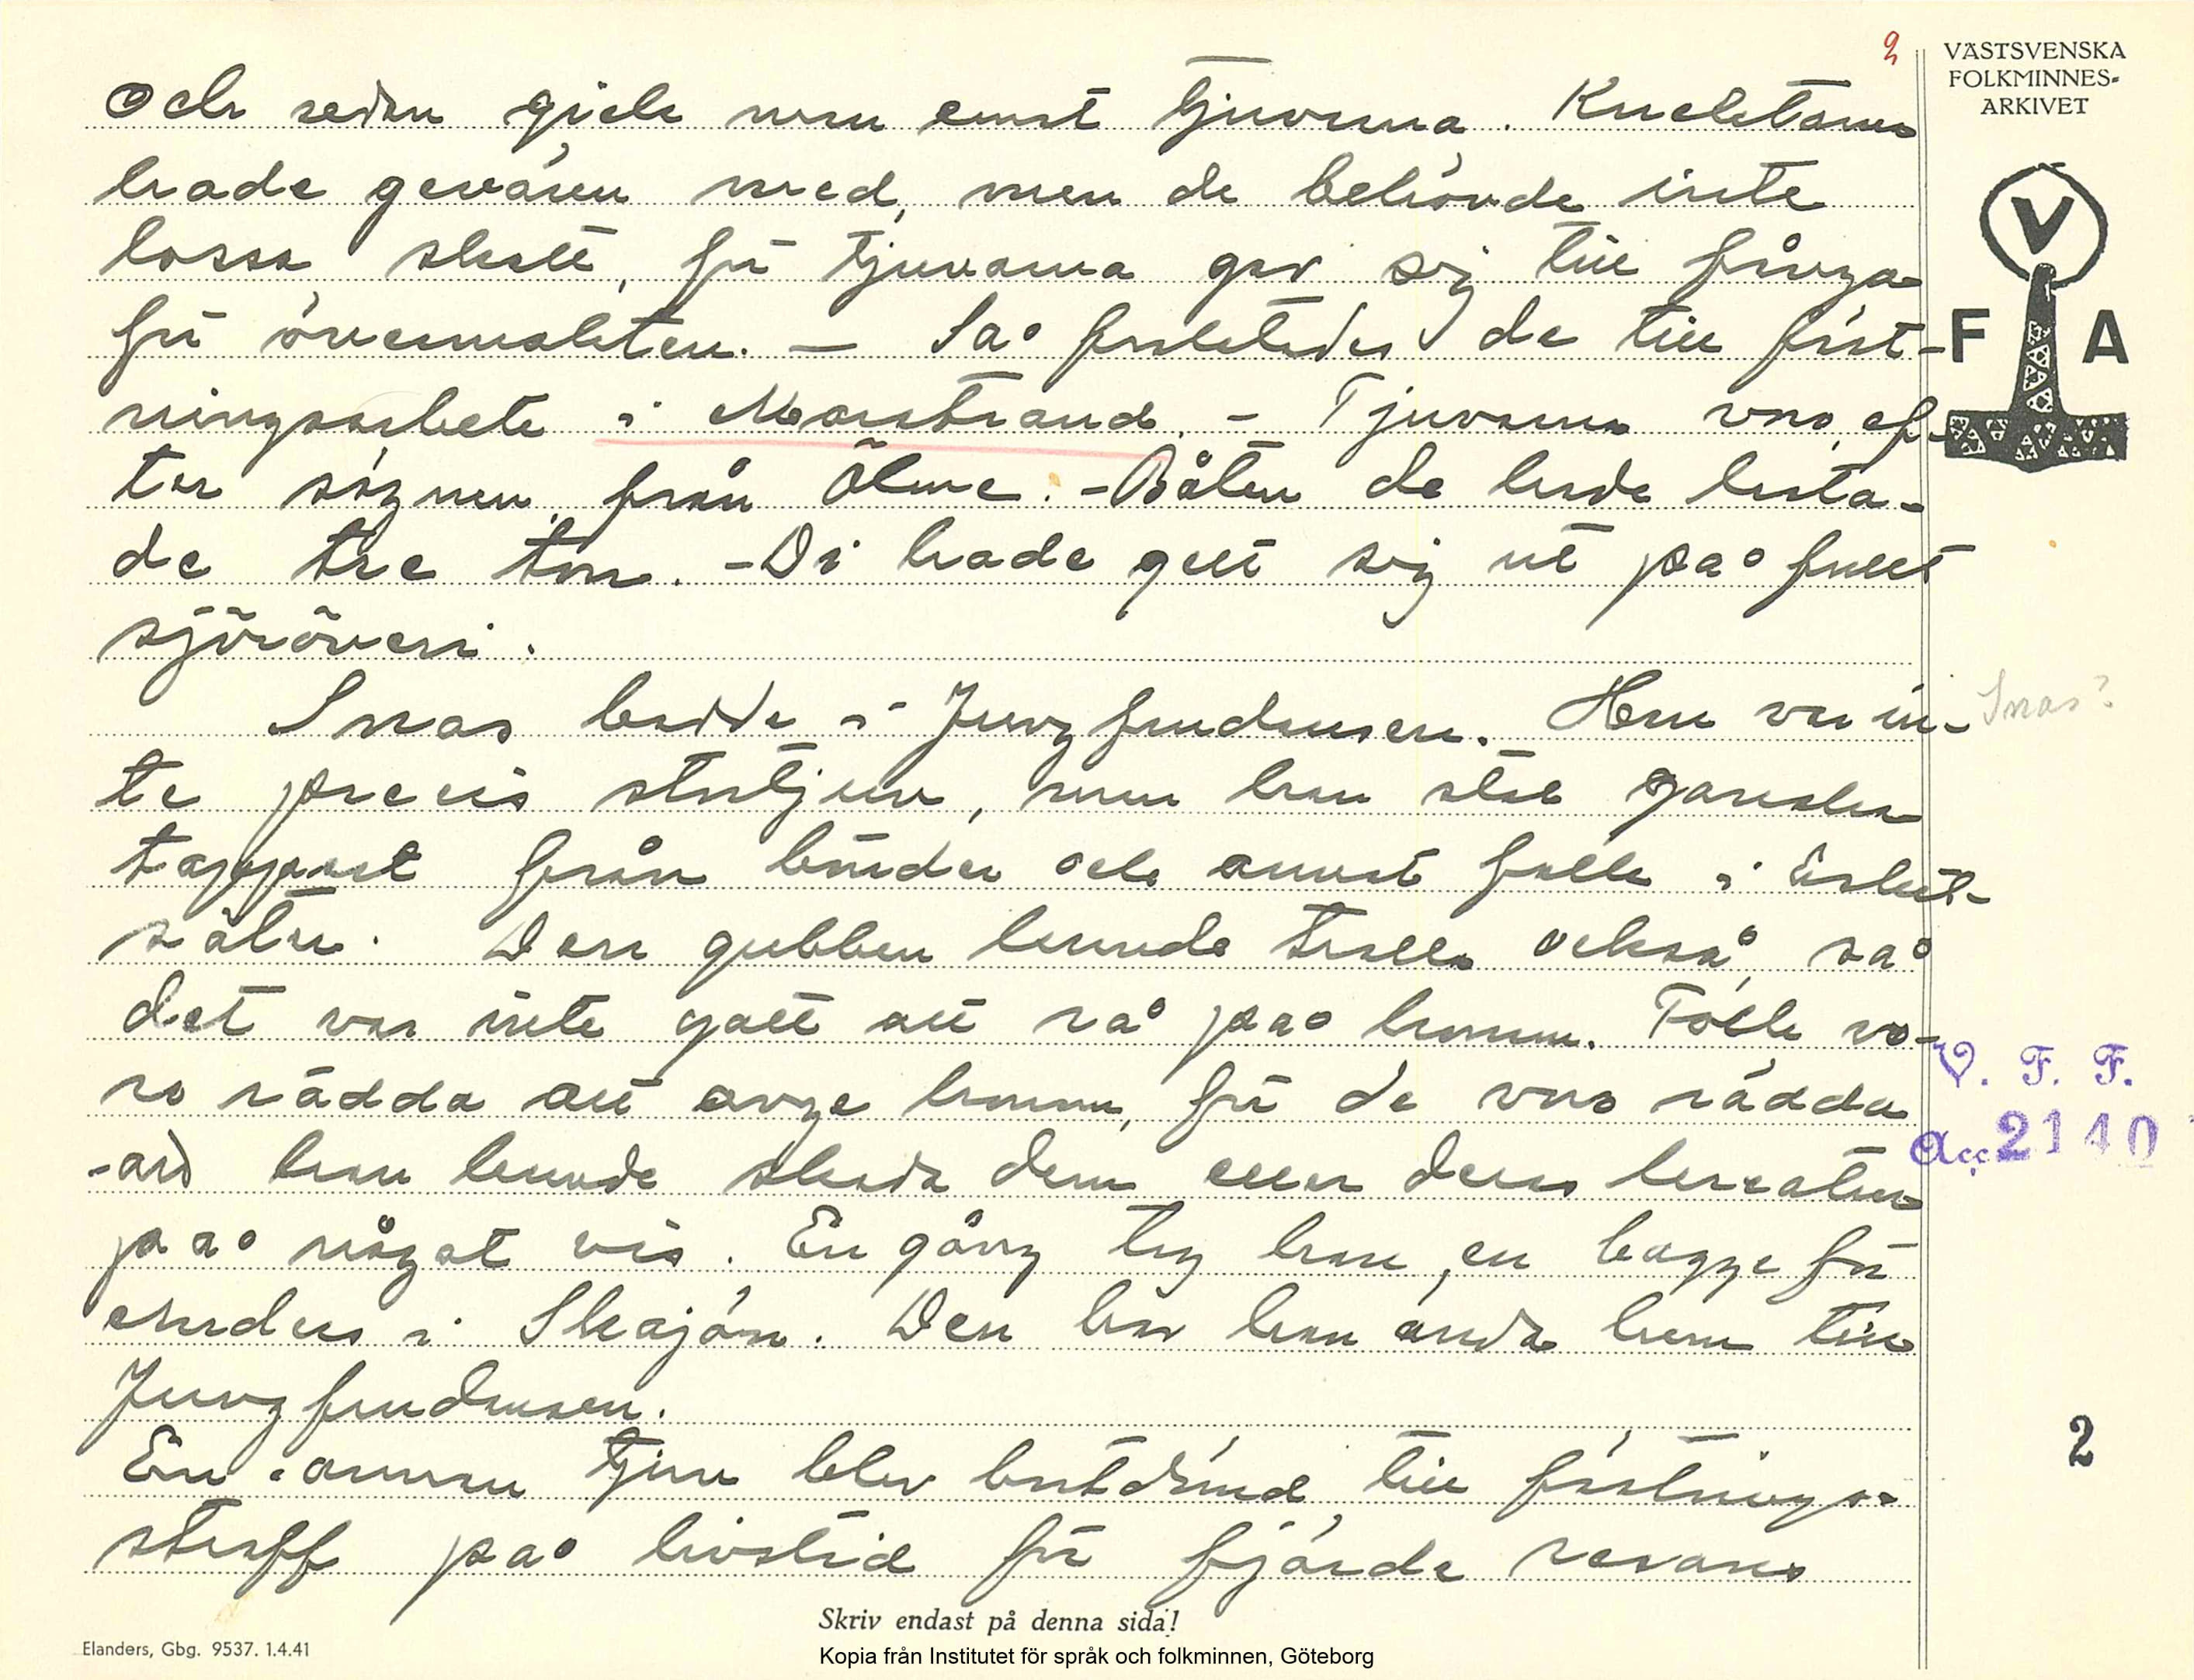 2
VÄSTSVENSKA
FOLKMINNES-
ARKIVET
och sedan gick man emot tjuvarna. Knektarna
hade gevären med, men de behövde inte
lossa skott, för tjuvarna gav sig till fånga
för övermakten. – Så forslades de till fäst-
ningsarbete i Marstrand. – Tjuvarna voro, ef-
ter sägnen, från Ölme. – Båten de hade lasta-
de tre ton. – Di hade gett sig ut på fullt
sjöröveri.
Snas bodde i Jungfrudmosen. Han var in-
te precis stortjuv, men han stal ganska
tappert från bönder och annat folk i Eskil-
säter. Den gubben kunde trolla också, så
det var inte gott att rå på honom. Folk vo-
ro rädda att ange honom, för de voro rädda
att han kunde skada dem eller deras kreatur
på något vis. En gång tog han en bagge för
Anders i Skajön. Den bar han ända hem till
Jungfrudmosen.
En annan tjuv blev bortdömd till fästnings-
straff på livstid för fjärde resans
V
F A
Snas?
V. F. F.
Acc 2140
2
Skriv endast på denna sida!
Elanders, Gbg. 9537. 1.4.41
Kopia från Institutet för språk och folkminnen, Göteborg